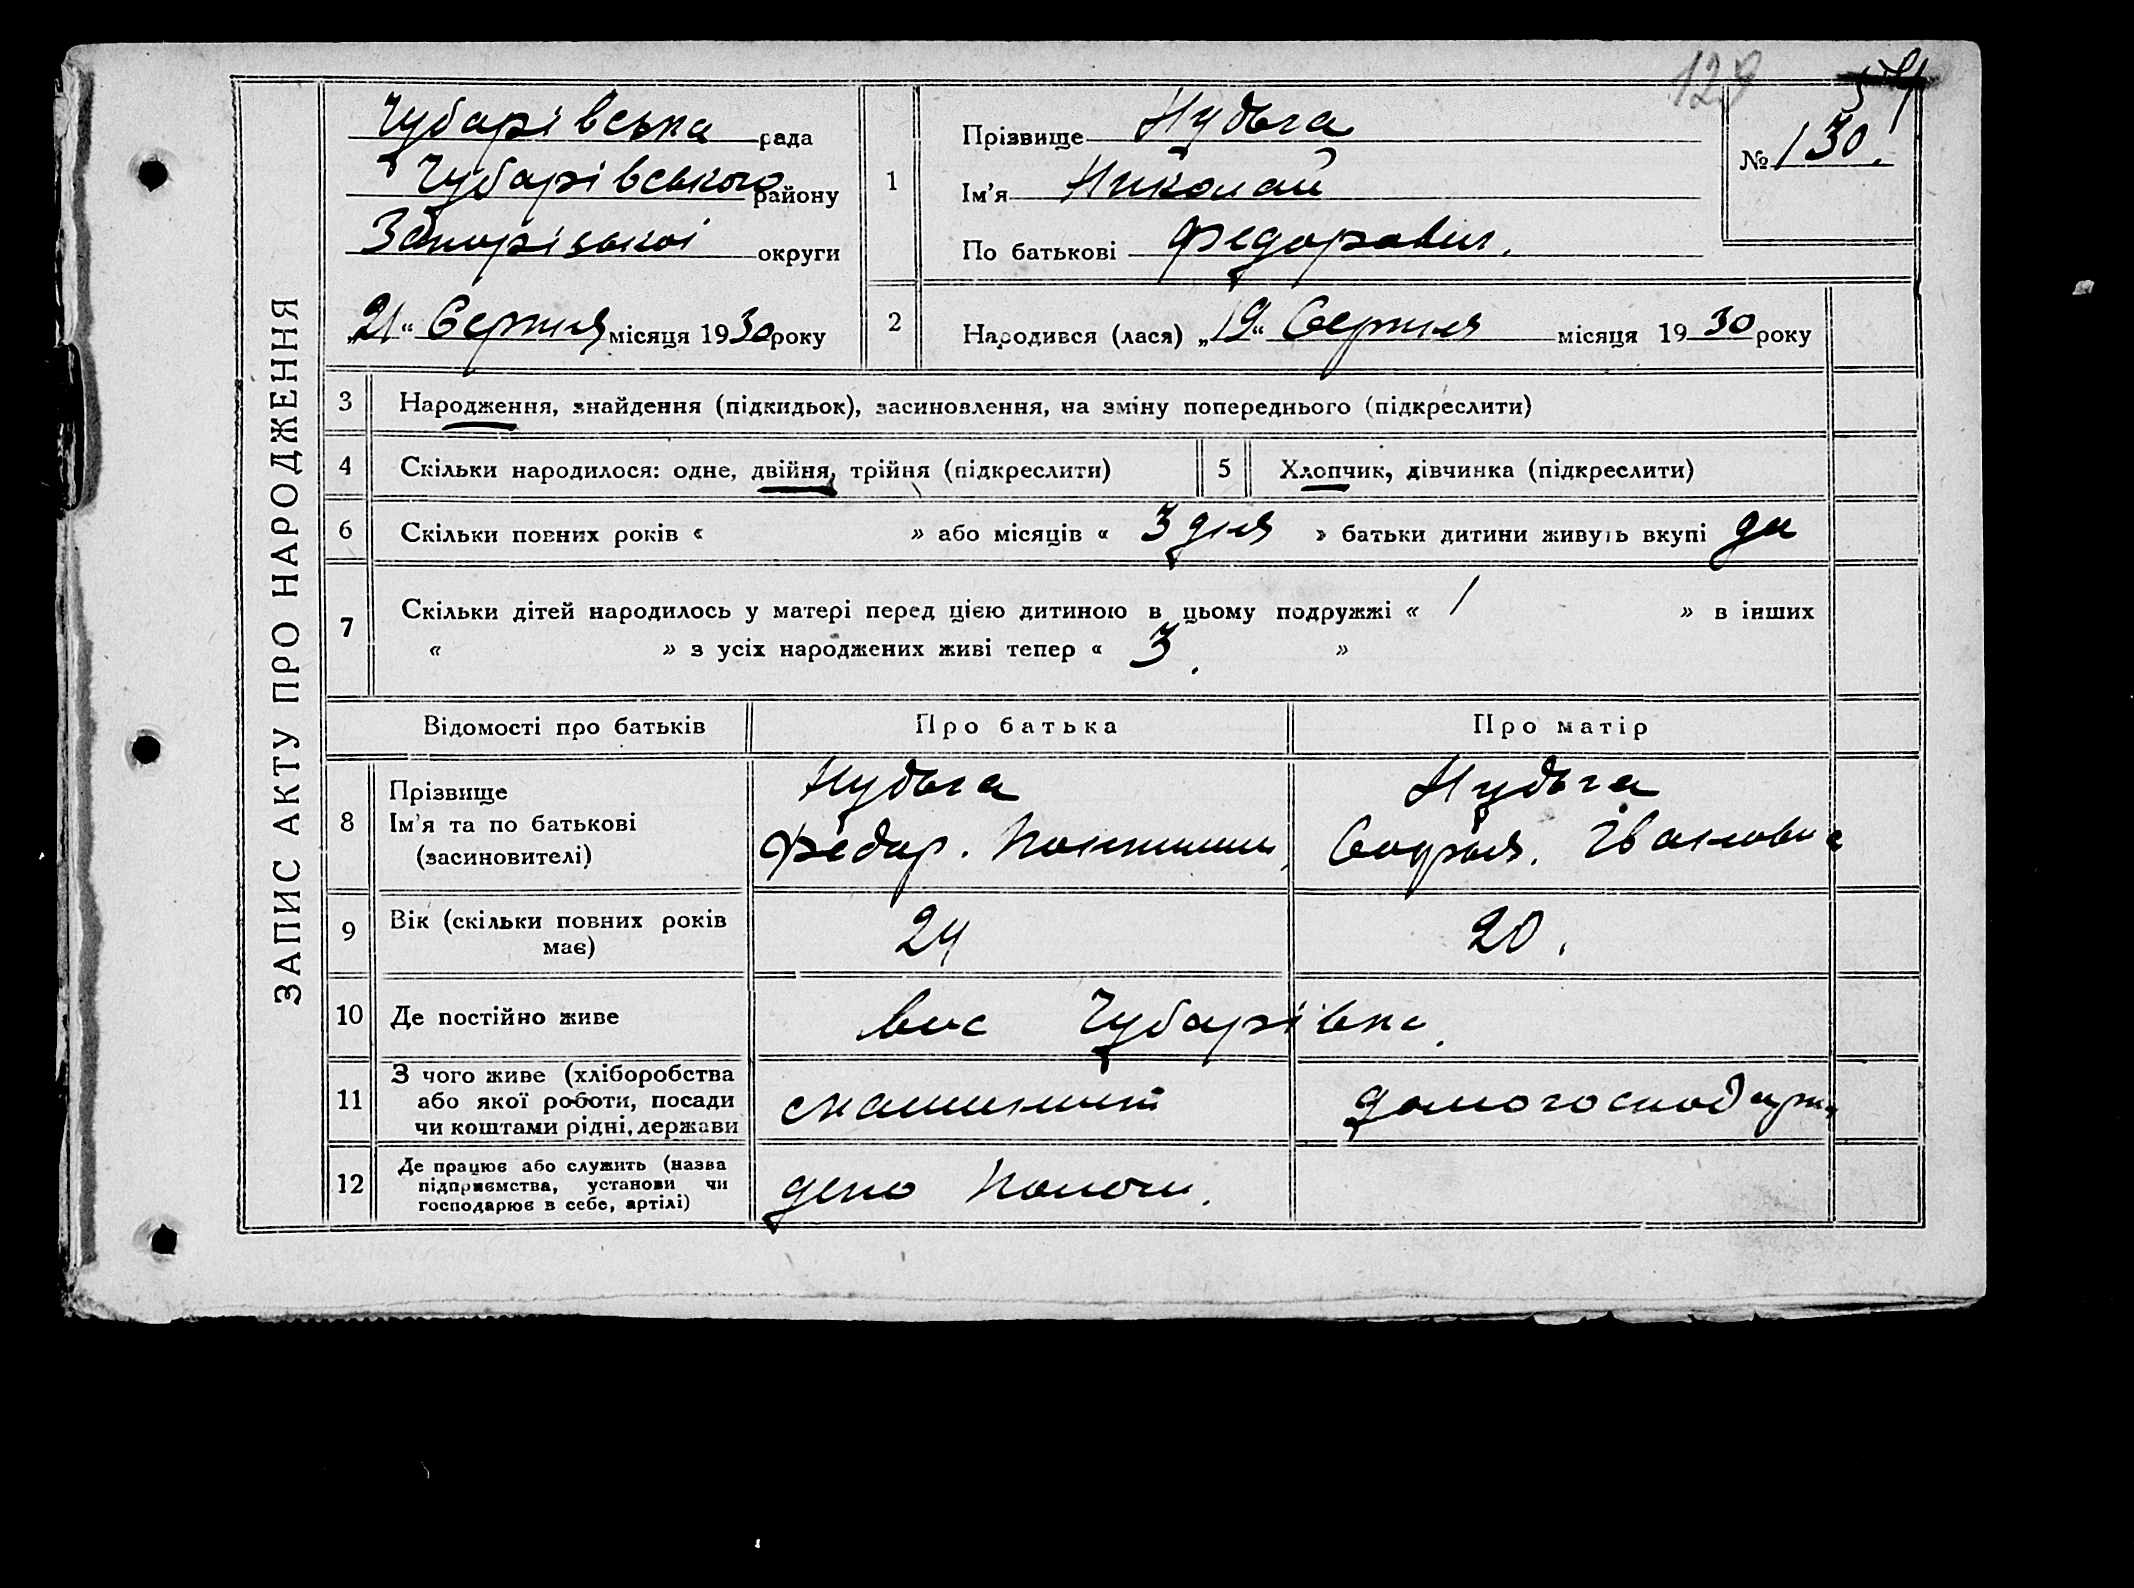 129
ЗАПИС АКТУ ПРО НАРОДЖЕННЯ
Чубарівська рада
Чубарівського району
округи
„21“ Серпня місяця 1930 року
1
Прізвище Нудьга
Ім’я Николай
По батькові Федорович.
№ 130.
2
Народився (лася) „19“ Серпня місяця 1930 року
3 Народження, знайдення (підкидьок), засиновлення, на зміну попереднього (підкреслити)
4 Скільки народилося: одне, двійня, трійня (підкреслити)
5 Хлопчик, дівчинка (підкреслити)
6 Скільки повних років « » або місяців « 3 дня » батьки дитини живуть вкупі да
7 Скільки дітей народилось у матері перед цією дитиною в цьому подружжі « 1 » в інших
« » з усіх народжених живі тепер « 3. »
Відомості про батьків Про батька Про матір
8 Прізвище
Ім’я та по батькові
(засиновителі)
Нудьга
Федор.
Нудьга
Івановна
9 Вік (скільки повних років
має)
24
20.
10 Де постійно живе
Чубарівка.
11 З чого живе (хліборобства
або якої роботи, посади
чи коштами рідні, держави
домогосподарка
12 Де працює або служить (назва
підприємства, установи чи
господарює в себе, артілі)
депо Пологи.